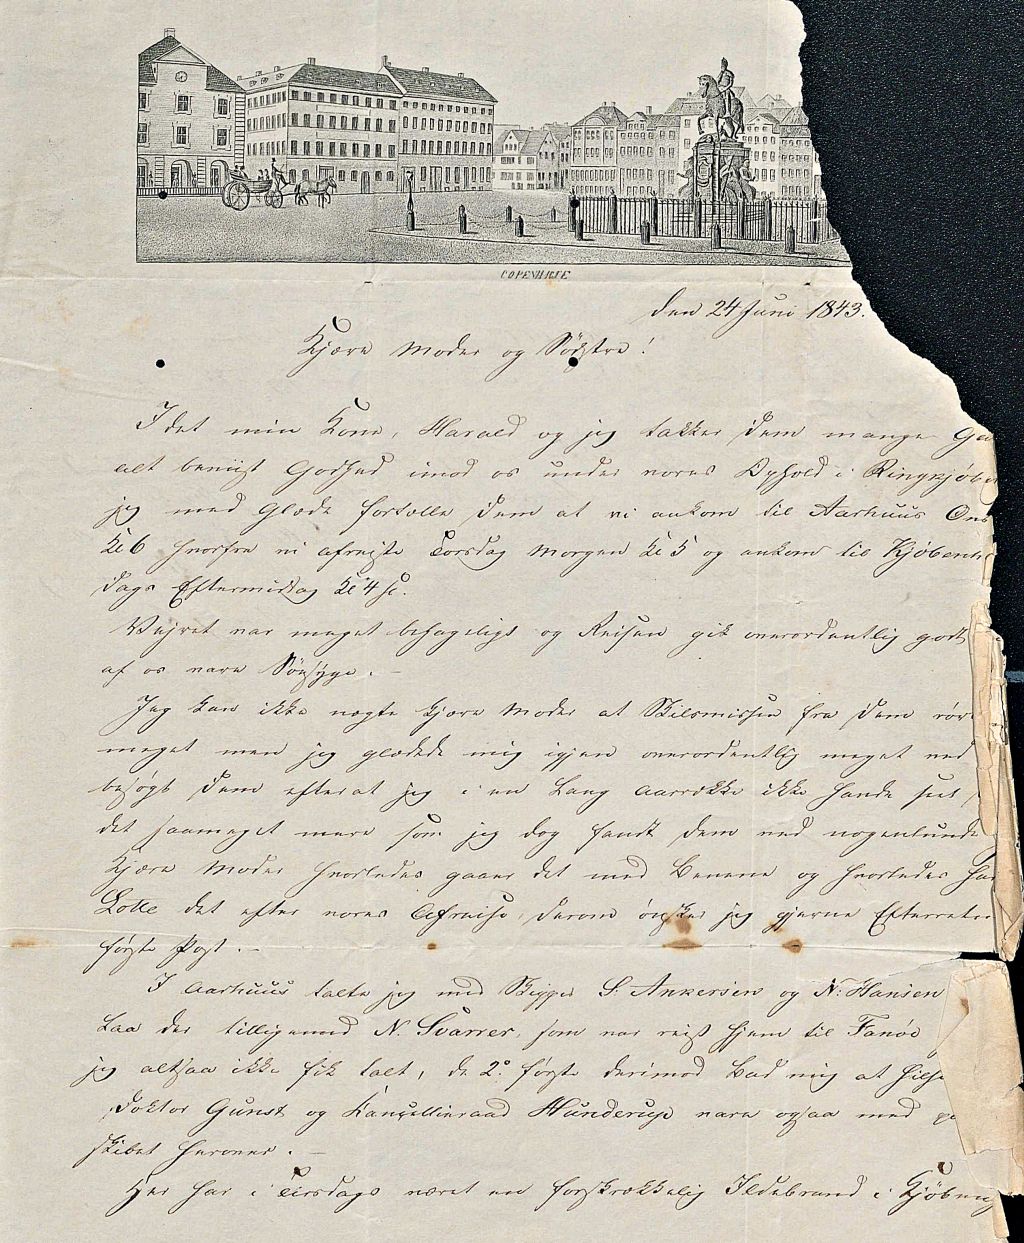 COPENHAGE
den 24 Juni 1843.
Kjære Moder og Södstre!
Idet min Kone, Harald og jeg takker Dem mange Ga
alt beviist Godhed imod os under vores Ophold i Ringkjøb
jeg med Glæde fortælle Dem at vi ankom til Aarhuus Ons
Kl 6 hvorfra vi afreiste Torsdag Morgen Kl 5 og ankom til Kjøbenh
dags Eftermiddag Kl 4
Vejret var meget behageligt og Reisen gik overordentlig godt
af os vare Söesyge. –
Jeg kan ikke nægte kjære Moder at Skilsmissen fra Dem rör
meget men jeg glædede mig igjen overordentlig meget ved
besögt Dem efterat jeg i en Lang Aarrække ikke havde seet
det saameget mere som jeg dog fandt Dem ved nogenlunde
Kjære Moder hvorledes gaaer det med Benene og hvorledes ha
Lotte det efter vores Afreise, derom önsker jeg gjerne Efterret
förste Post. –
I Aarhuus talte jeg med Skipper S. Ankersen og N: Hansen
Laa der tilligemed N. Svarrer, som var reist hjem til Fanöe
jeg altsaa ikke fik talt, de 2de förste derimod bad mig at hilse
Doktor Gunst og Kancelliraad Hunderup vare ogsaa med
skibet herover. –
Her har i Tirsdags været en forskrækkelig Ildebrand i Kjöben